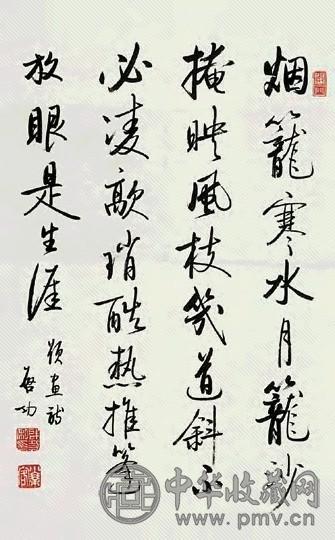 烟籠寒水月籠沙
掩映風枝幾道斜不
必凌歊銷酷熱推篷
放眼是生涯
題畫詩
启功
中华收藏网
www.pmv.cn